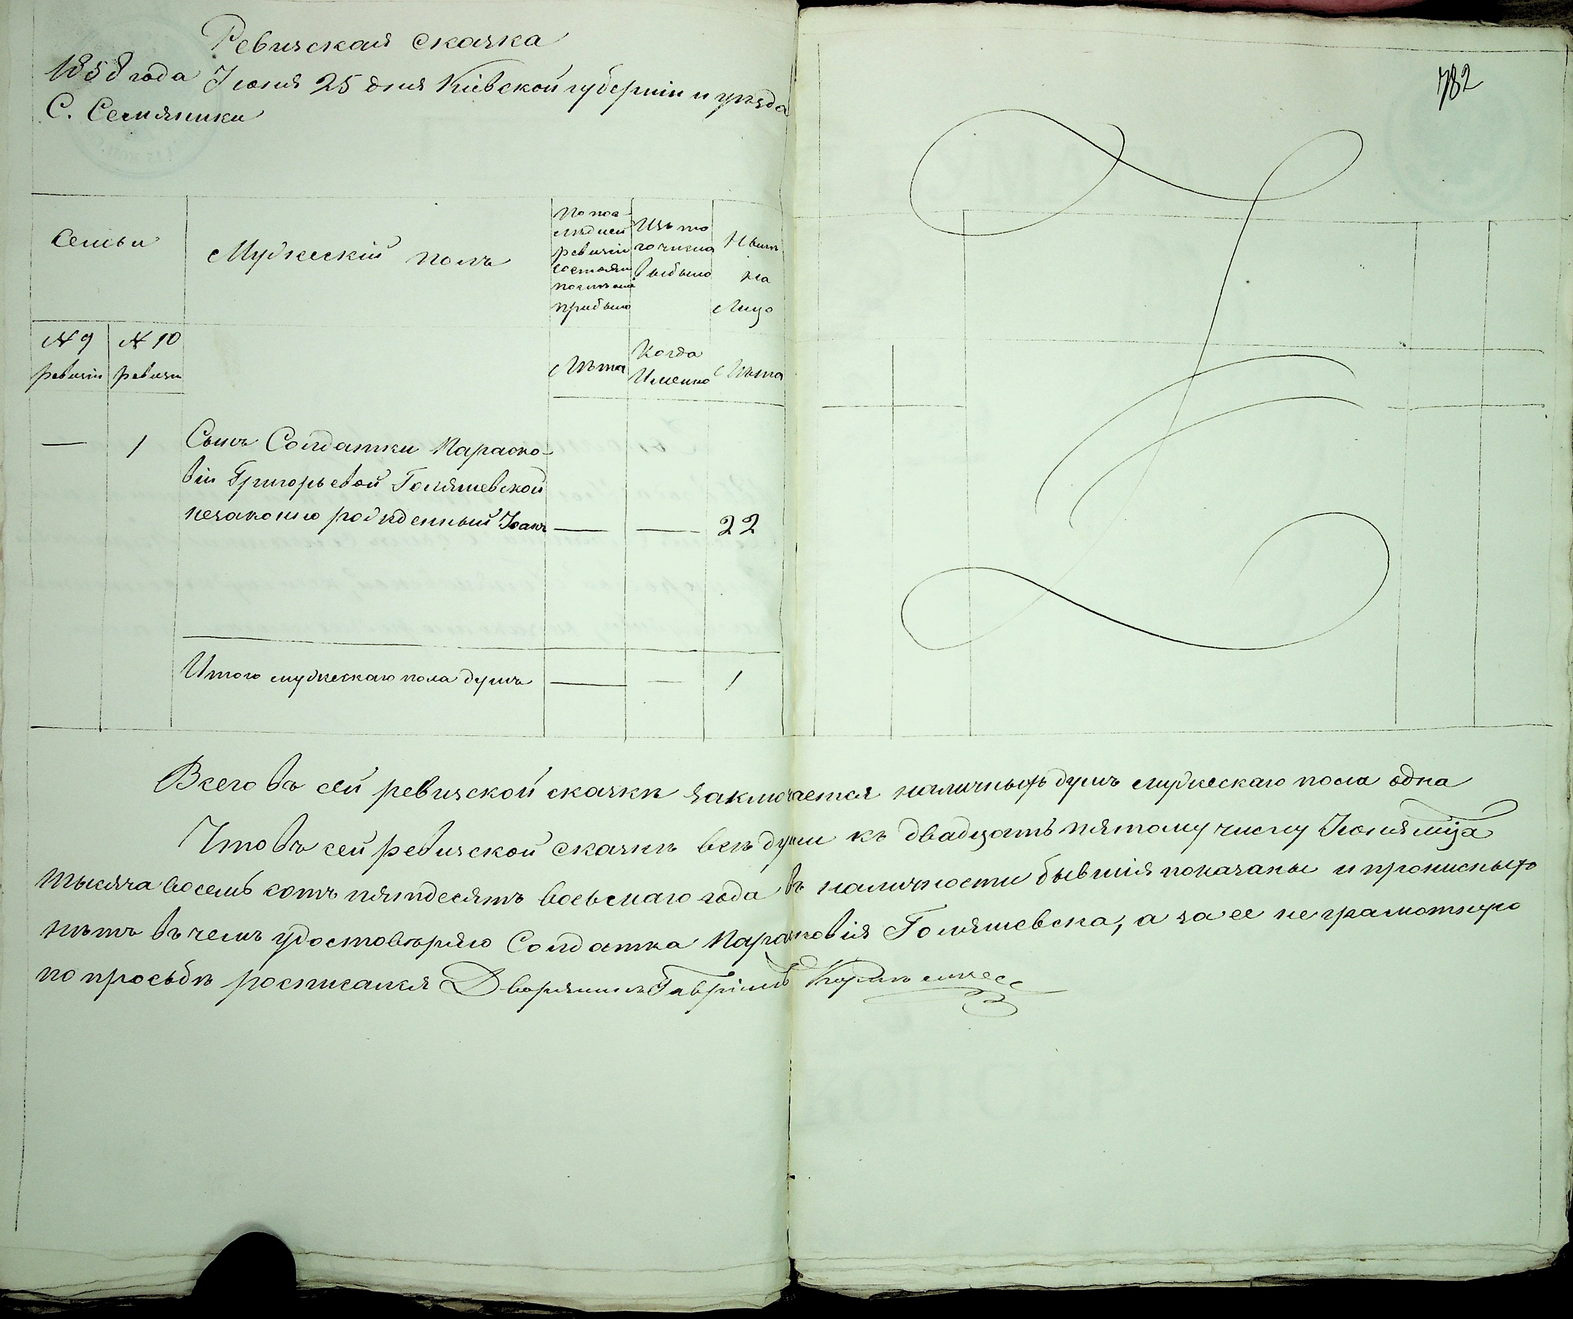 Ревизская сказка
1858 года Іюня 25 дня Кіевской губерніи и уезда
С. Семяники
782
Семьи
Мужескій полъ
По пос-
лѣдней
ревизіи
состояло
послѣ оной
прибыло
Изъ то
го числа
выбыло
Нынѣ
на
Лицо
№ 9
ревизіи
№ 10
ревизіи
Лѣта
Когда
Именно
Лѣта
— 1 Сынъ Солдатки Параско-
віи Григорьевой Голяшевской
незаконно рожденный Іоанъ — — 22
Итого мужескаго пола душъ — — 1
Всего въ сей ревизской сказкѣ заключается наличныхъ душъ мужескаго пола одна
Что въ сей ревизской сказкѣ всѣ души къ двадцать пятому числу Іюня мѣца
тысяча восемь сотъ пятдесятъ восьмаго года въ наличности бывшія показаны и прописныхъ
нѣтъ въ чемъ удостовѣряю Солдатка Парасковія Голяшевска, а за ее неграмотную
по просьбѣ росписался Дворянинъ Гавріилъ